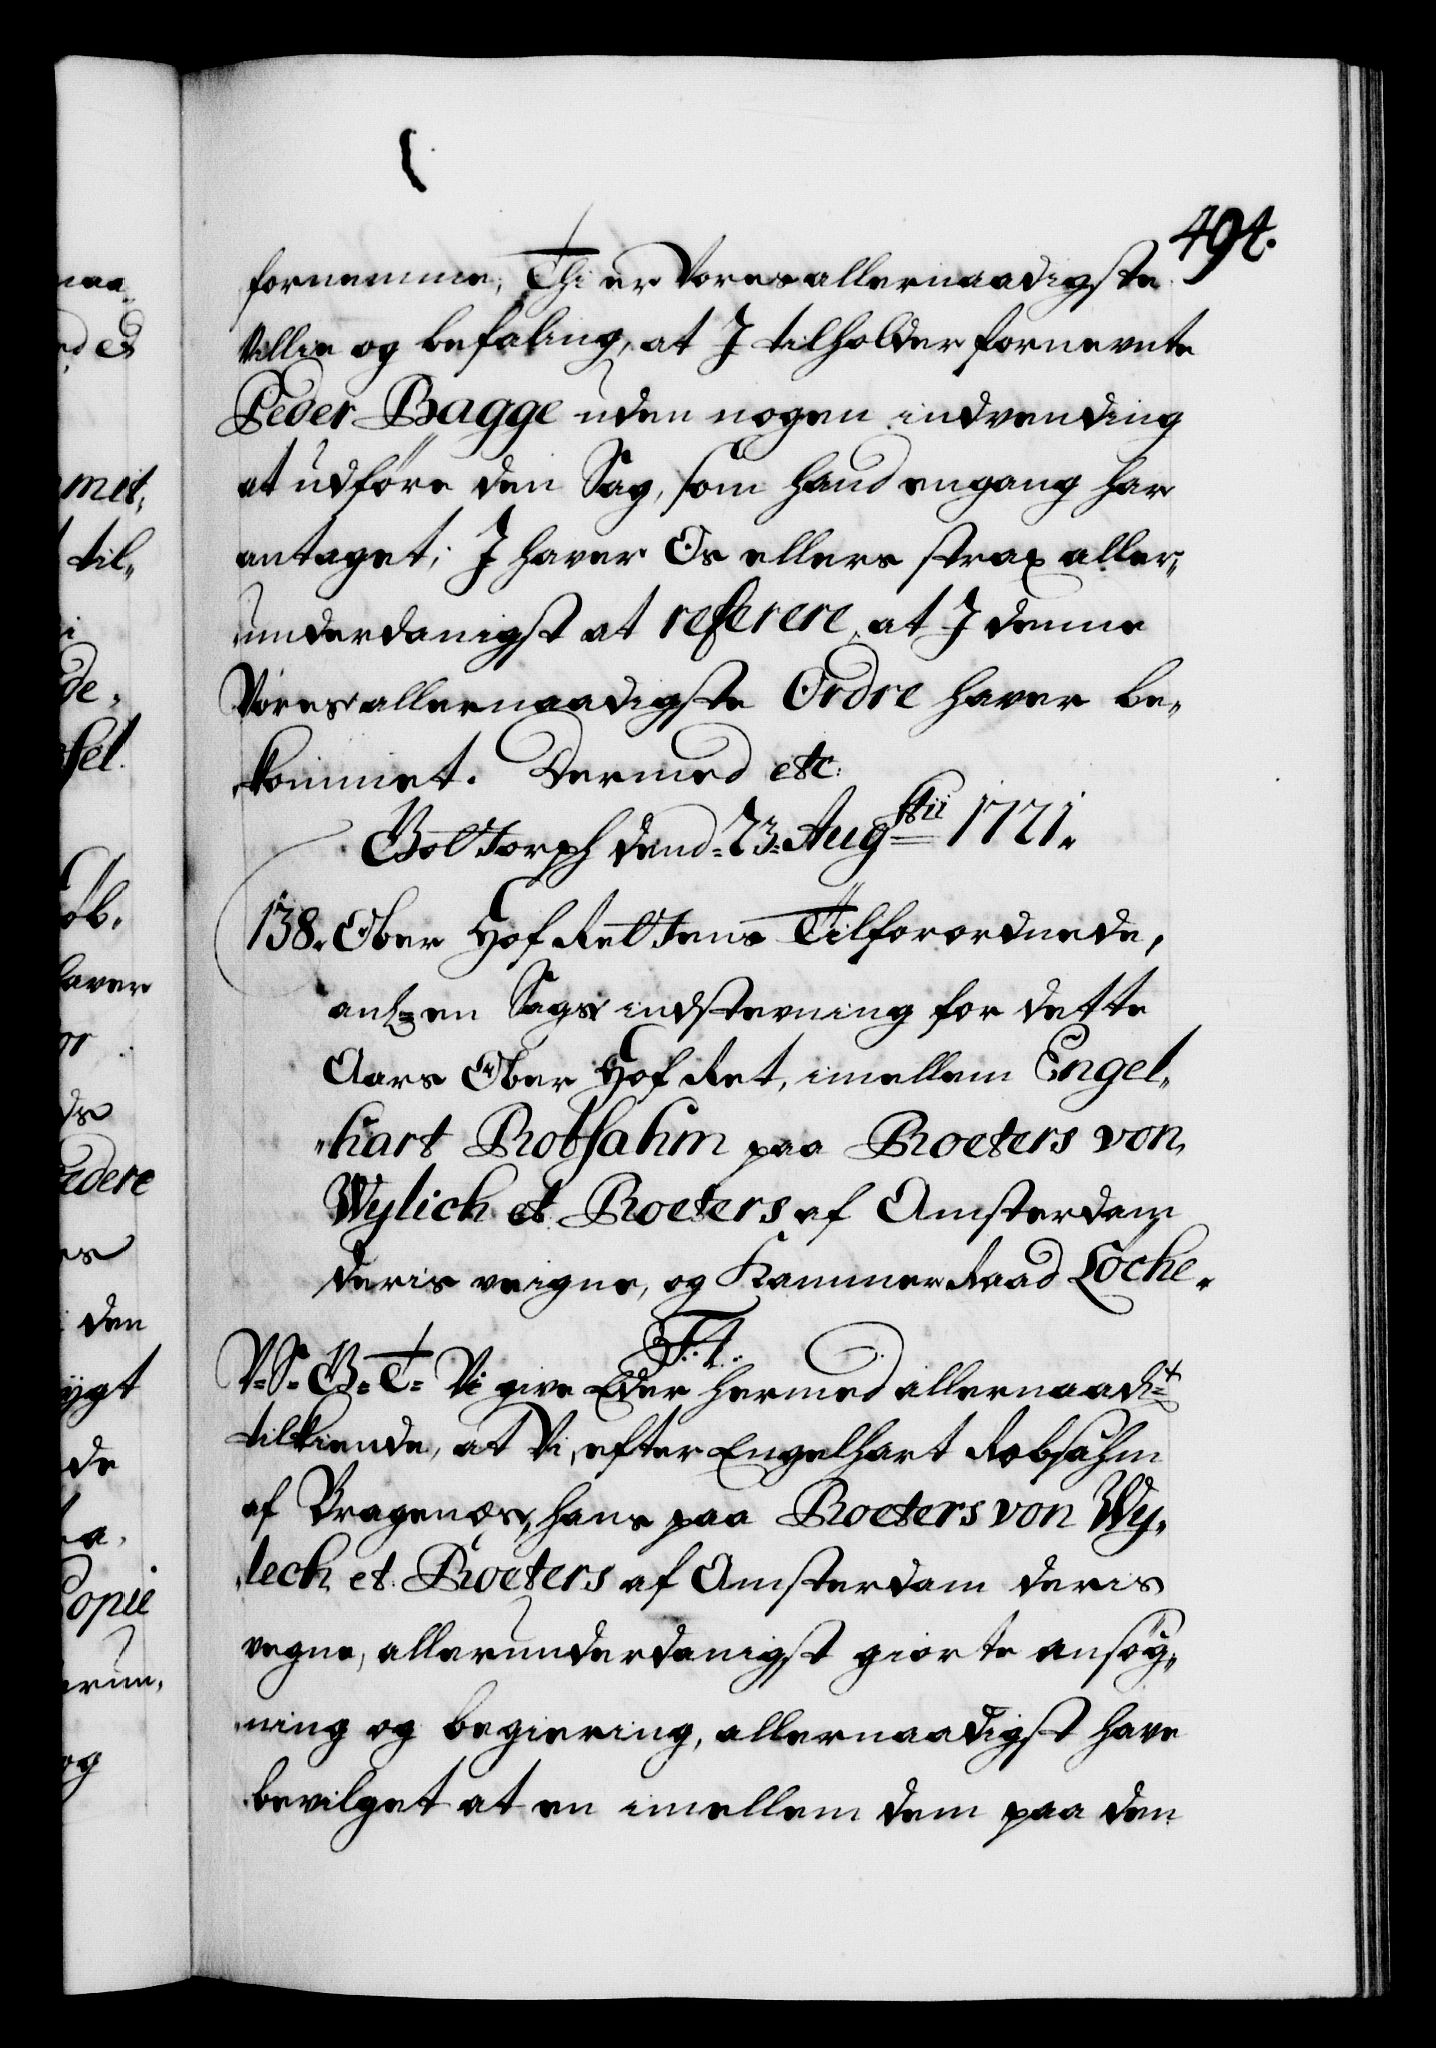 494.
fornemme; Thi er Vores allernaadigste
Villie og befaling, at I tilholder fornevnte
Peder Bagge uden nogen indvending
at udføre den Sag, som hand engang har
antaget; I haver Os ellers strax aller„
underdanigst at referere, at I denne
Vores allernaadigste Ordre haver be„
kommet. Dermed etc:
Gottorph dend 23. Augstii 1721.
138. Ober Hof Rettens Tilforordnede,
anl: en Sags indstevning for dette
Aars Ober Hof Ret, imellem Engel„
„hart Robsahm paa Roeters von
Wylich et Roeters af Amsterdam
deris veigne, og Kammer Raad Locke.
F: 4.
V. S. G. T. Vi give Eder hermed allernaadt
tilkiende, at Vi, efter Engelhart Robsahm
af Bragenæs, hans paa Roeters von Wy„
„lech et Roeters af Amsterdam deris
vegne, allerunderdanigst giorte ansøg„
„ning og begiering, allernaadigst have
bevilget at en imellem dem paa den
naa„
met.
til„
de„
øb.
haver
or
ds
es
den
de
Copie
erun„
og